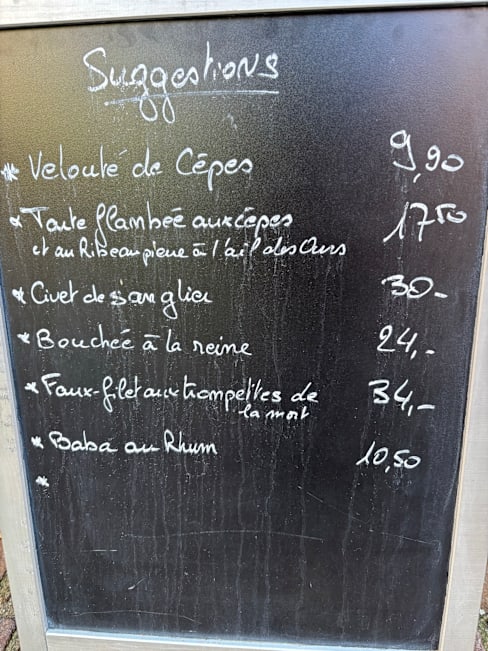 Suggestions
* Velouté de Cêpes 9,90
* Tarte flambée aux cèpes 17 50
et au Ribeaupierre à l'ail des Ours
* Civet de sanglier 30.-
* Bouchée à la reine 24,-
* Faux-filet aux trompettes de 34,-
la mort
* Baba au Rhum 10,50
*